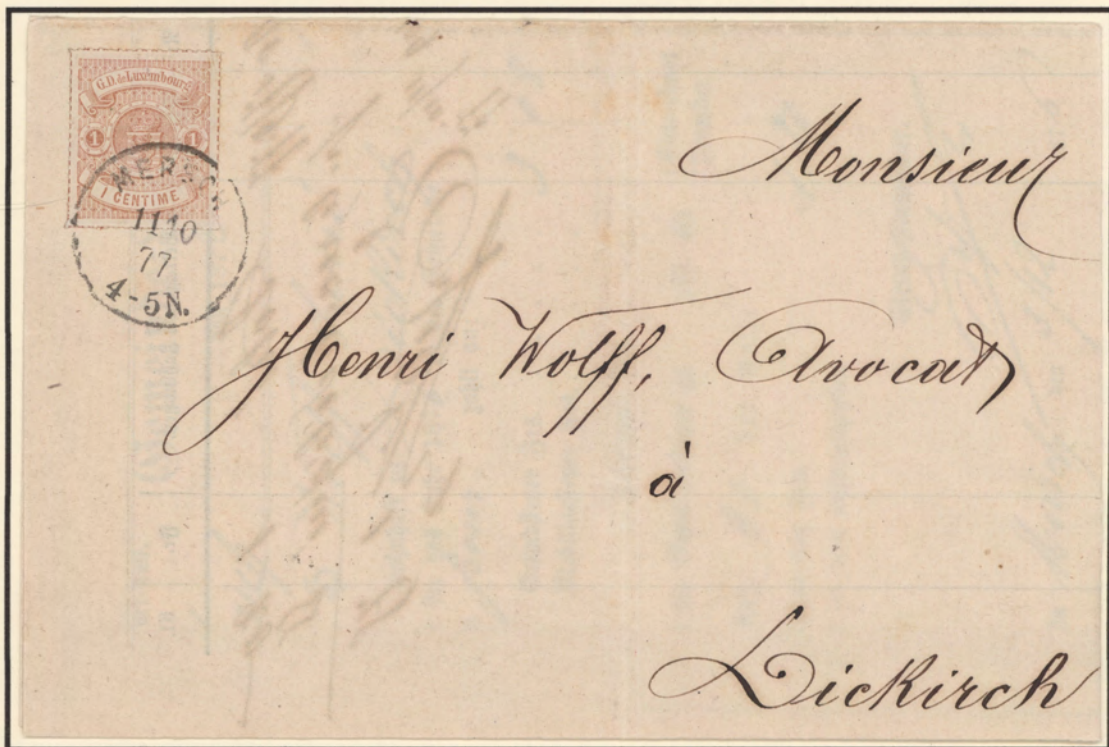 G.D. de Luxembourg
1 1
1 CENTIME
MERSCH
11 10
77
4-5N.
Monsieur
Henri Wolff, Avocat
à
Diekirch